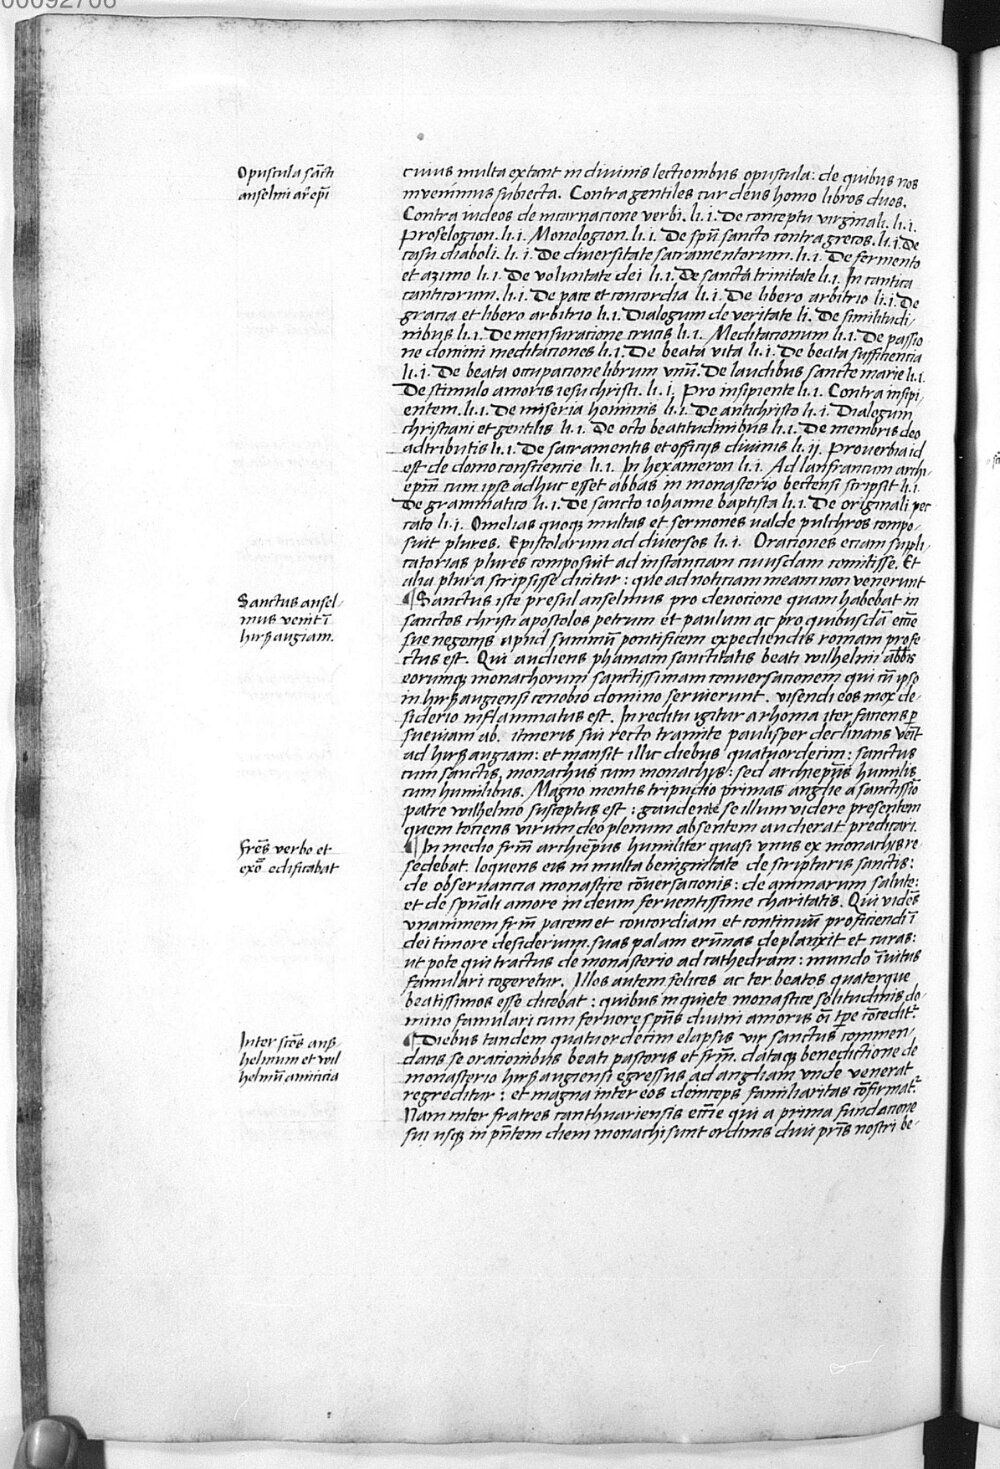 00092706
Opuscula sāctі
anselmi arͨepī
cuius multa extant in diuinis lectionibus opuscula: de quibus nos
inuenimus subiecta. Contra gentiles cur deus homo libros duos.
Contra iudeos de incarnacione verbi. li. i. De conceptu virginali. li. i.
Proselogion. li. i. Monologion. li. i. De spū sancto contra grecos. li. i. De
casu diaboli. li. i. De diuersitate sacramentorum. li. i. De fermento
et azimo li. i. De voluntate dei li. i. De sancta trinitate li. i. In cantica
canticorum. li. i. De pace et concordia li. i. De libero arbitrio li. i. De
gracia et libero arbitrio li. i. Dialogum de veritate li. De similitudi-
nibus li. i. De mensuracione crucis li. i. Meditacionum li. i. De passio
ne domini meditaciones li. i. De beata vita li. i. De beata sufficiencia
li. i. De beata occupacione librum vnū. De laudibus sancte marie li. i.
De stimulo amoris iesu christi. li. i. Pro insipiente li. i. Contra insipi-
entem. li. i. De miseria hominis li. i. De antichristo li. i. Dialogum
christiani et gentilis li. i. De octo beatitudinibus li. i. De membris deo
adtributis li. i. De sacramentis et officijs diuinis li. ii. Prouerbia id
est de domo consciencie li. i. In hexameron li. i. Ad lanfrancum archi-
epm̄ cum ipse adhuc esset abbas in monasterio beccensi scripsit li. i.
De grammatico li. i. De sancto iohanne baptista li. i. De originali pec
cato li. i. Omelias quoqꝫ multas et sermones valde pulchros compo-
suit plures. Epistolarum ad diuersos li. i. Oraciones eciam supli-
catorias plures composuit ad instanciam cuiusdam comitisse. Et
alia plura scripsisse dicitur: que ad noticiam meam non venerunt
Sanctus ansel-
mus venit ī
hirsaugiam.
¶ Sanctus iste presul anselmus pro deuocione quam habebat in
sanctos christi apostolos petrum et paulum ac pro quibusdā ecc̄ie
sue negocijs apud summū pontificem expediendis romam profe
ctus est. Qui audiens phamam sanctitatis beati wilhelmi abb̄is
eorumqꝫ monachorum sanctissimam conuersacionem qui cū ipso
in hirsaugiensi cenobio domino seruierunt. visendi eos mox de-
siderio inflammatus est. In reditu igitur a rhoma iter faciens ꝑ
sueuiam ab itineris sui recto tramite paulisper declinans venit
ad hirsaugiam: et mansit illic diebus quatuordecim: sanctus
cum sanctis, monachus cum monachis: sed archiepūs humilis
cum humilibus. Magno mentis tripudio primas anglie a sanctissīo
patre wilhelmo susceptus est: gaudente se illum videre presentem
quem tociens virum deo plenum absentem audierat predicari.
Frēs verbo et
exō edificabat
¶ In medio frm̄ archiepūs humiliter quasi vnus ex monachis re
sedebat. loquens eis in multa benignitate de scripturis sanctis:
de obseruancia monastice cōuersacionis: de animarum salute:
et de spūali amore in deum feruentissime charitatis. Qui vidēs
vnanimem frm̄ pacem et concordiam et continuū proficiendi ī
dei timore desiderium. suas palam erūnas deplanxit et curas:
ut pote qui tractus de monasterio ad cathedram: mundo īuitus
famulari cogeretur. Illos autem felices ac ter beatos quaterque
beatissimos esse dicebat: quibus in quiete monastice solitudinis do-
mino famulari cum feruore spūs diuini amoris oī tꝑe cōcedit᷑.
Inter scōs ans-
helmum et wil
helmū amicicia
¶ Diebus tandem quatuordecim elapsis vir sanctus commen-
dans se oracionibus beati pastoris et frm̄. dataqꝫ benedictione de
monasterio hirsaugiensi egressus ad angliam vnde venerat
regreditur: et magna inter eos deinceps familiaritas cōfirmat᷑.
Nam inter fratres canthuariensis ecc̄ie qui a prima fundacione
sui usqꝫ in pn̄tem diem monachi sunt ordinis diui pr̄is nostri be-